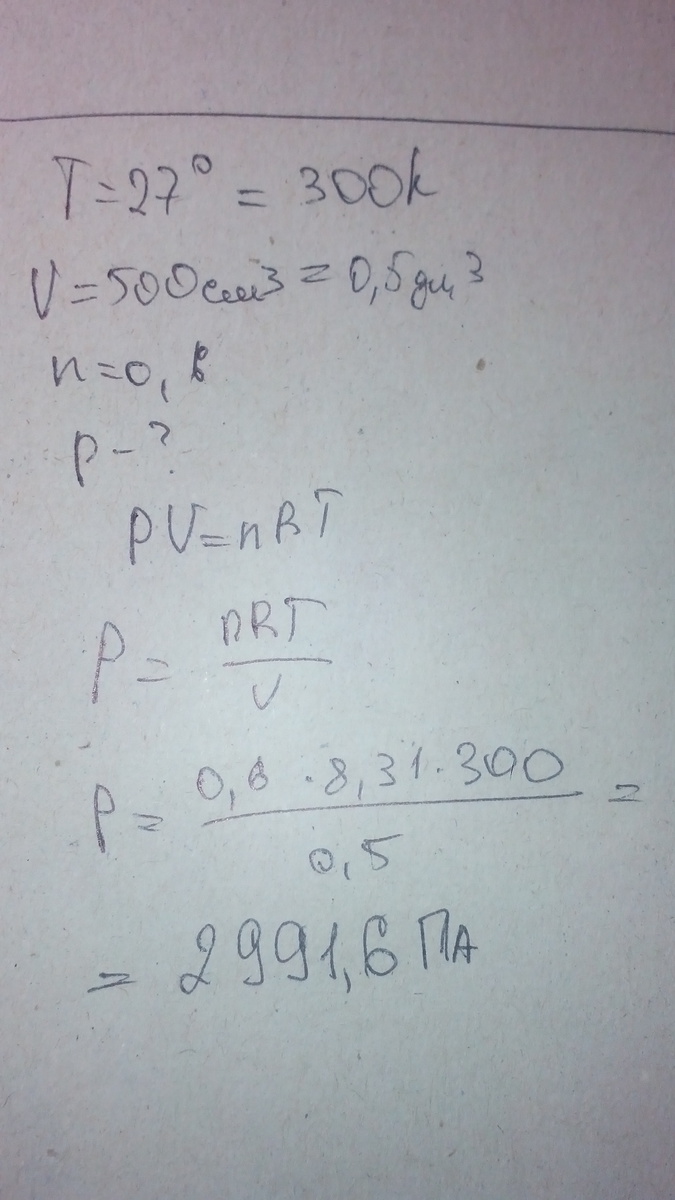 T=27° = 300k
V=500см³=0,5дм³
n=0,6
p-?
PV=nRT
P= nRT
V
P= 0,6 · 8,31 · 300 =
0,5
= 2991,6 ПА